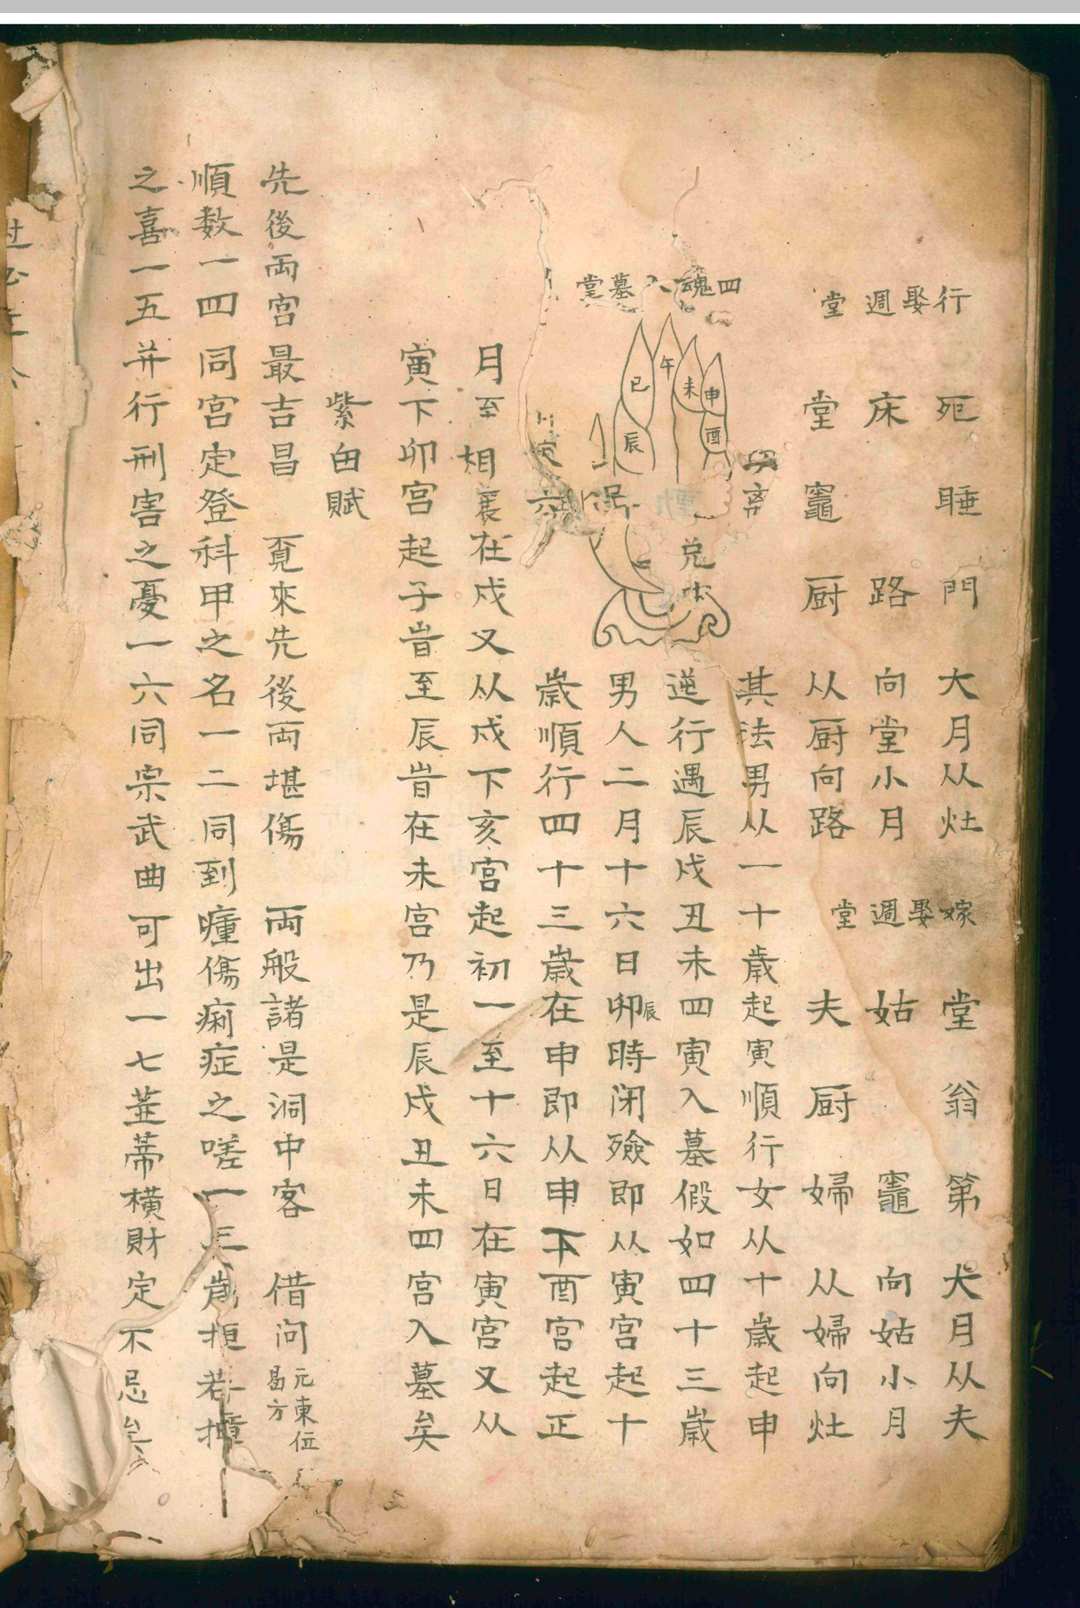 行娶週堂
死 睡 門 大月从灶
床 路 向堂小月
堂 竈 厨 从厨向路
嫁娶週堂
堂 翁 第 大月从夫
姑 竈 向姑小月
夫 厨 婦 从婦向灶
四魂入墓堂
巳 午 未 申
辰 酉
兑
其法男从一十歳起寅順行女从十歳起申
逆行遇辰戍丑未四寅入墓假如四十三歳
男人二月十六日卯辰時闭殮即从寅宫起十
歳順行四十三歳在申即从申下酉宫起正
月至 相襄在戍又从戍下亥宫起初一至十六日在寅宫又从
寅下卯宫起子旹至辰旹在未宫乃是辰戍丑未四宫入墓矣
紫白賦
先後両宫最吉昌 覔來先後両堪傷 両般諸是洞中客 借问元東位曷方
順数一四同宫定登科甲之名一二同到瘇傷痢症之嗟一
之喜一五并行刑害之憂一六同宗武曲可出一七並蒂横財定不忌矣